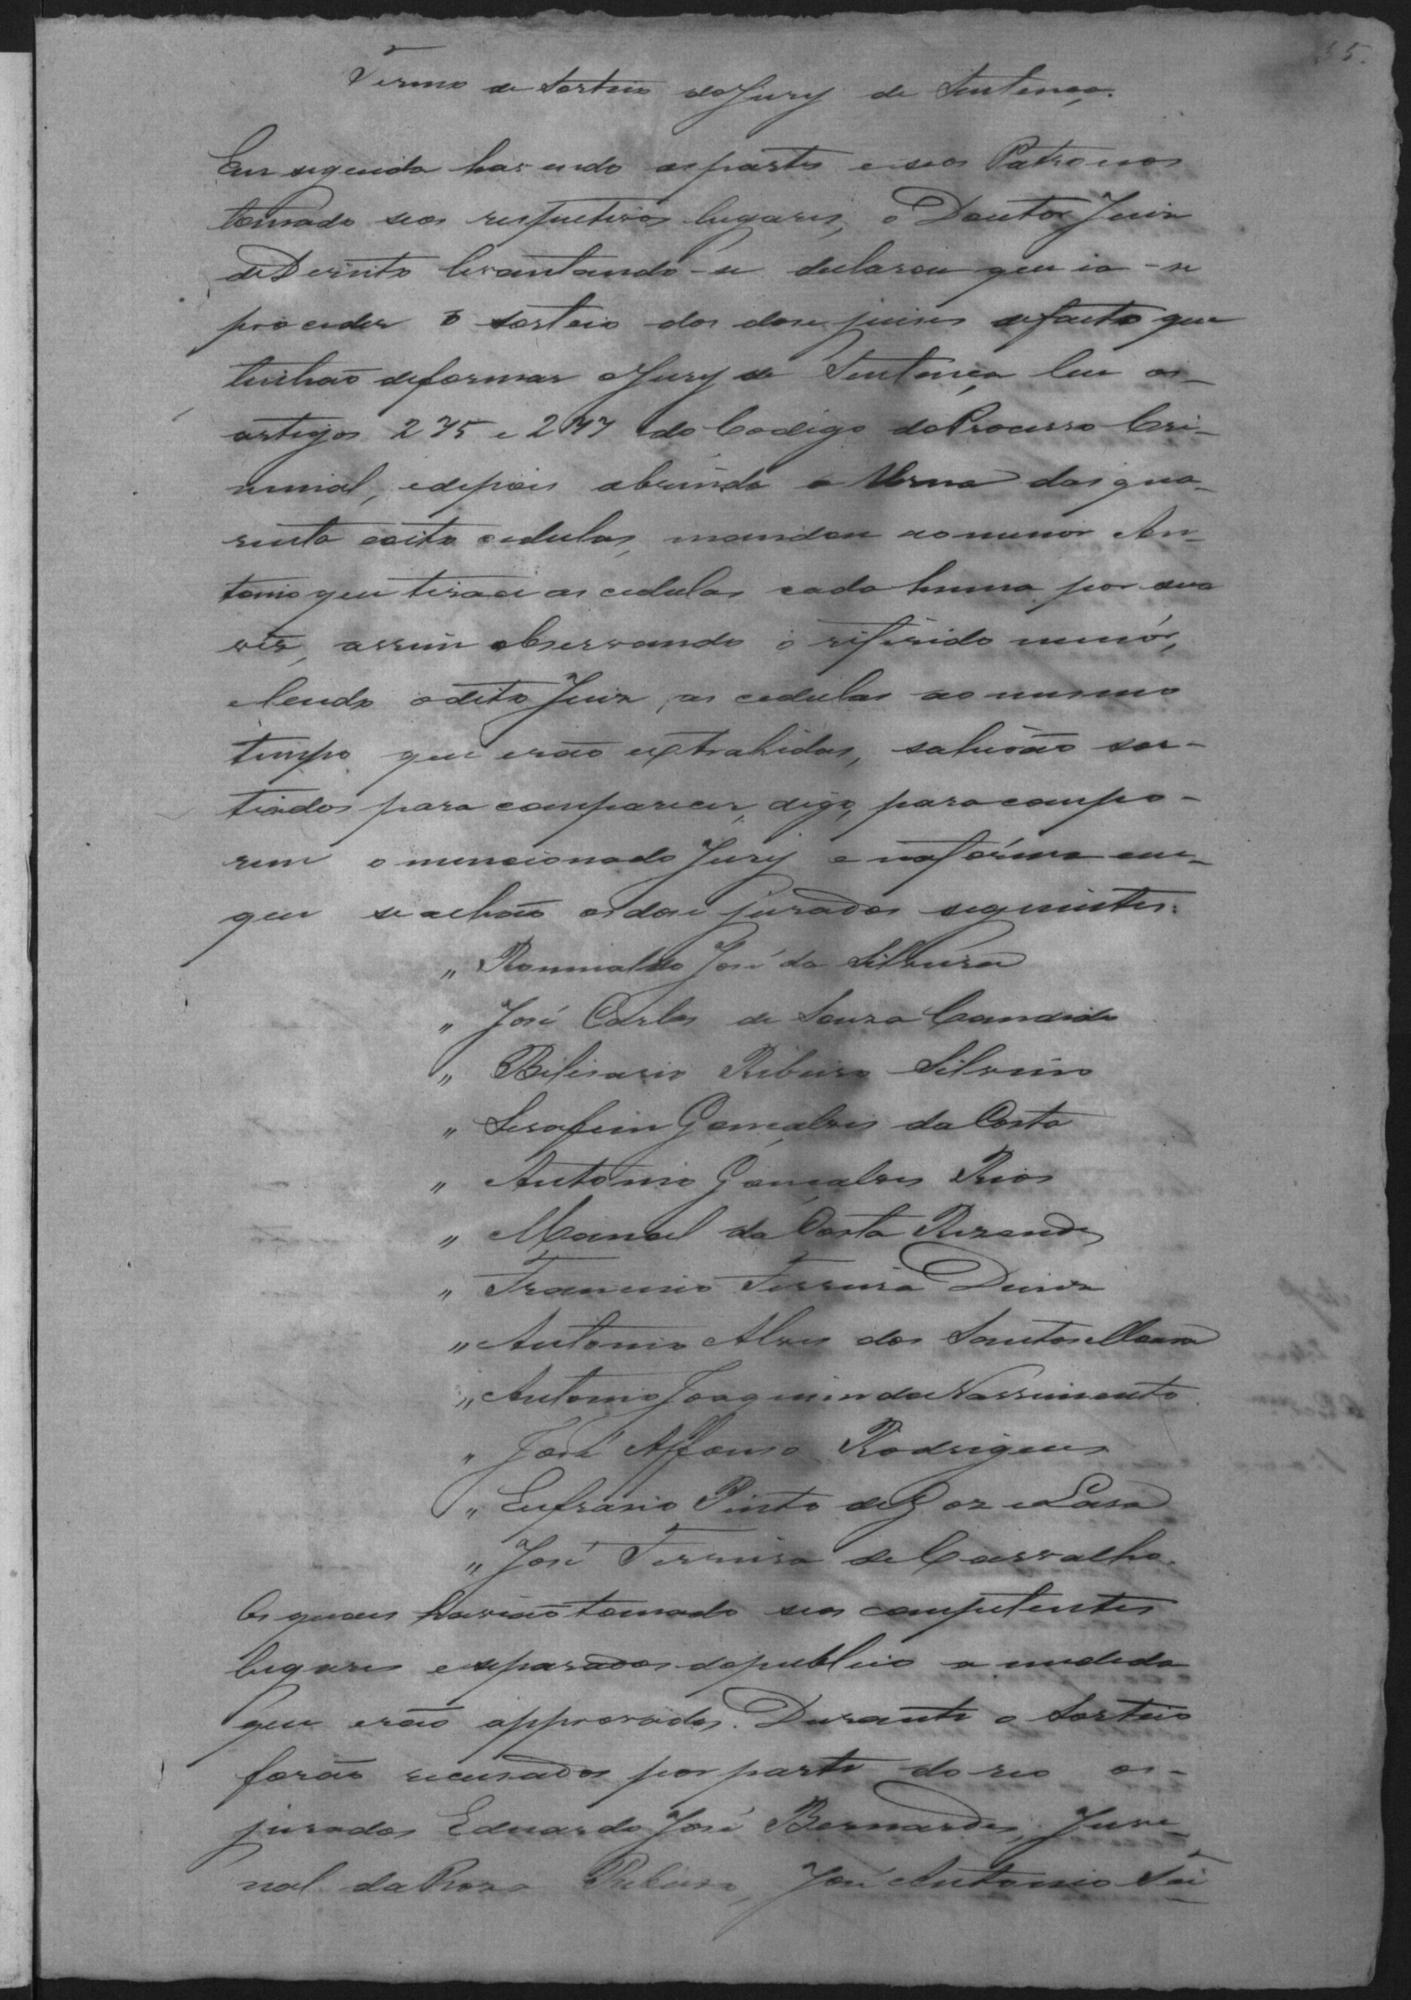 55.
Termo de Sorteio do Jury de Sentença.
Em seguida havendo as partes e seos Patronos
tomado seos respectivos lugares, o Doutor Juiz
de Direito levantando-se declarou que ia-se
proceder o sorteio dos dose juises de facto que
tinhão de formar o Jury de Sentença, leu os
artigos 275 e 277 do Codigo do Processo Cri-
minal, e depois abrindo a Urna das qua-
renta e oito cedulas, mandou ao menor An-
tonio que tirace as cedulas cada huma por sua
vez, assim observando o referido menór,
e lendo o dito Juiz, as cedulas ao mesmo
tempo que erão extrahidas, sahirão sor-
tiados para comparecer, digo, para compo-
rem o mencionado Jury e na fórma em
que se achão os dose jurados seguintes:
" Romualdo José da Silveira
" José Carlos de Souza Candido
" Belisario Ribeiro Silvino
" Serafim Gonçalves da Costa
" Antonio Gonçalves Rios
" Manoel da Costa Rezende
" Francisco Ferreira Diniz
" Antonio Alves dos Santos Moura
" Antonio Joaquim do Nascimento
" José Affonso Rodrigues
" Eufrasio Pinto de Goz e Lara
" José Ferreira de Carvalho.
Os quaes havião tomado seos competentes
lugares e separados do publico a medida
que erão approvados. Durante o Sorteio
forão recusados por parte do reo os-
jurados Eduardo José Bernardes, Juve-
nal da Roza Ribeiro, José Antonio Tei-